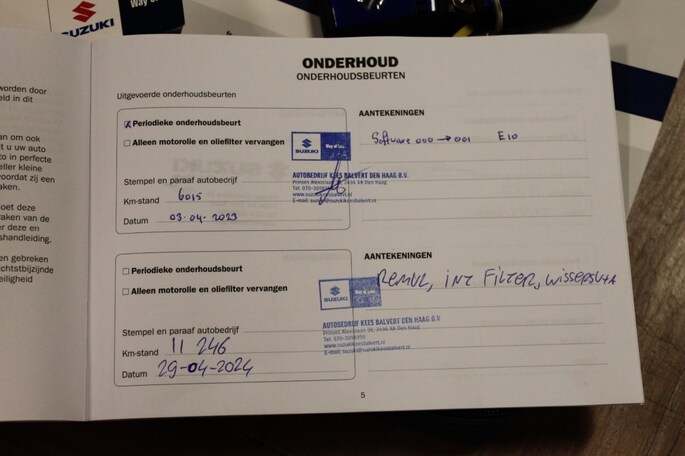 SUZUKI
Way of
ONDERHOUD
ONDERHOUDSBEURTEN
Uitgevoerde onderhoudsbeurten
Periodieke onderhoudsbeurt
Alleen motorolie en oliefilter vervangen
Stempel en paraaf autobedrijf
Km-stand 6015
Datum 03-04-2023
AANTEKENINGEN
Software 000 → 001 E10
SUZUKI Way of Life
AUTOBEDRIJF KEES BALVERT DEN HAAG B.V.
Periodieke onderhoudsbeurt
Alleen motorolie en oliefilter vervangen
Stempel en paraaf autobedrijf
Km-stand 11 246
Datum 29-04-2024
AANTEKENINGEN
REMVL, INT FILTER,
SUZUKI
AUTOBEDRIJF KEES BALVERT DEN HAAG B.V.
5
worden door
eid in dit
an om ook
t u uw auto
to in perfecte
eller kleine
voordat zij een
aken.
oet deze
raken van de
er deze en
shandleiding,
en gebreken
chtstbijzijnde
eiligheid